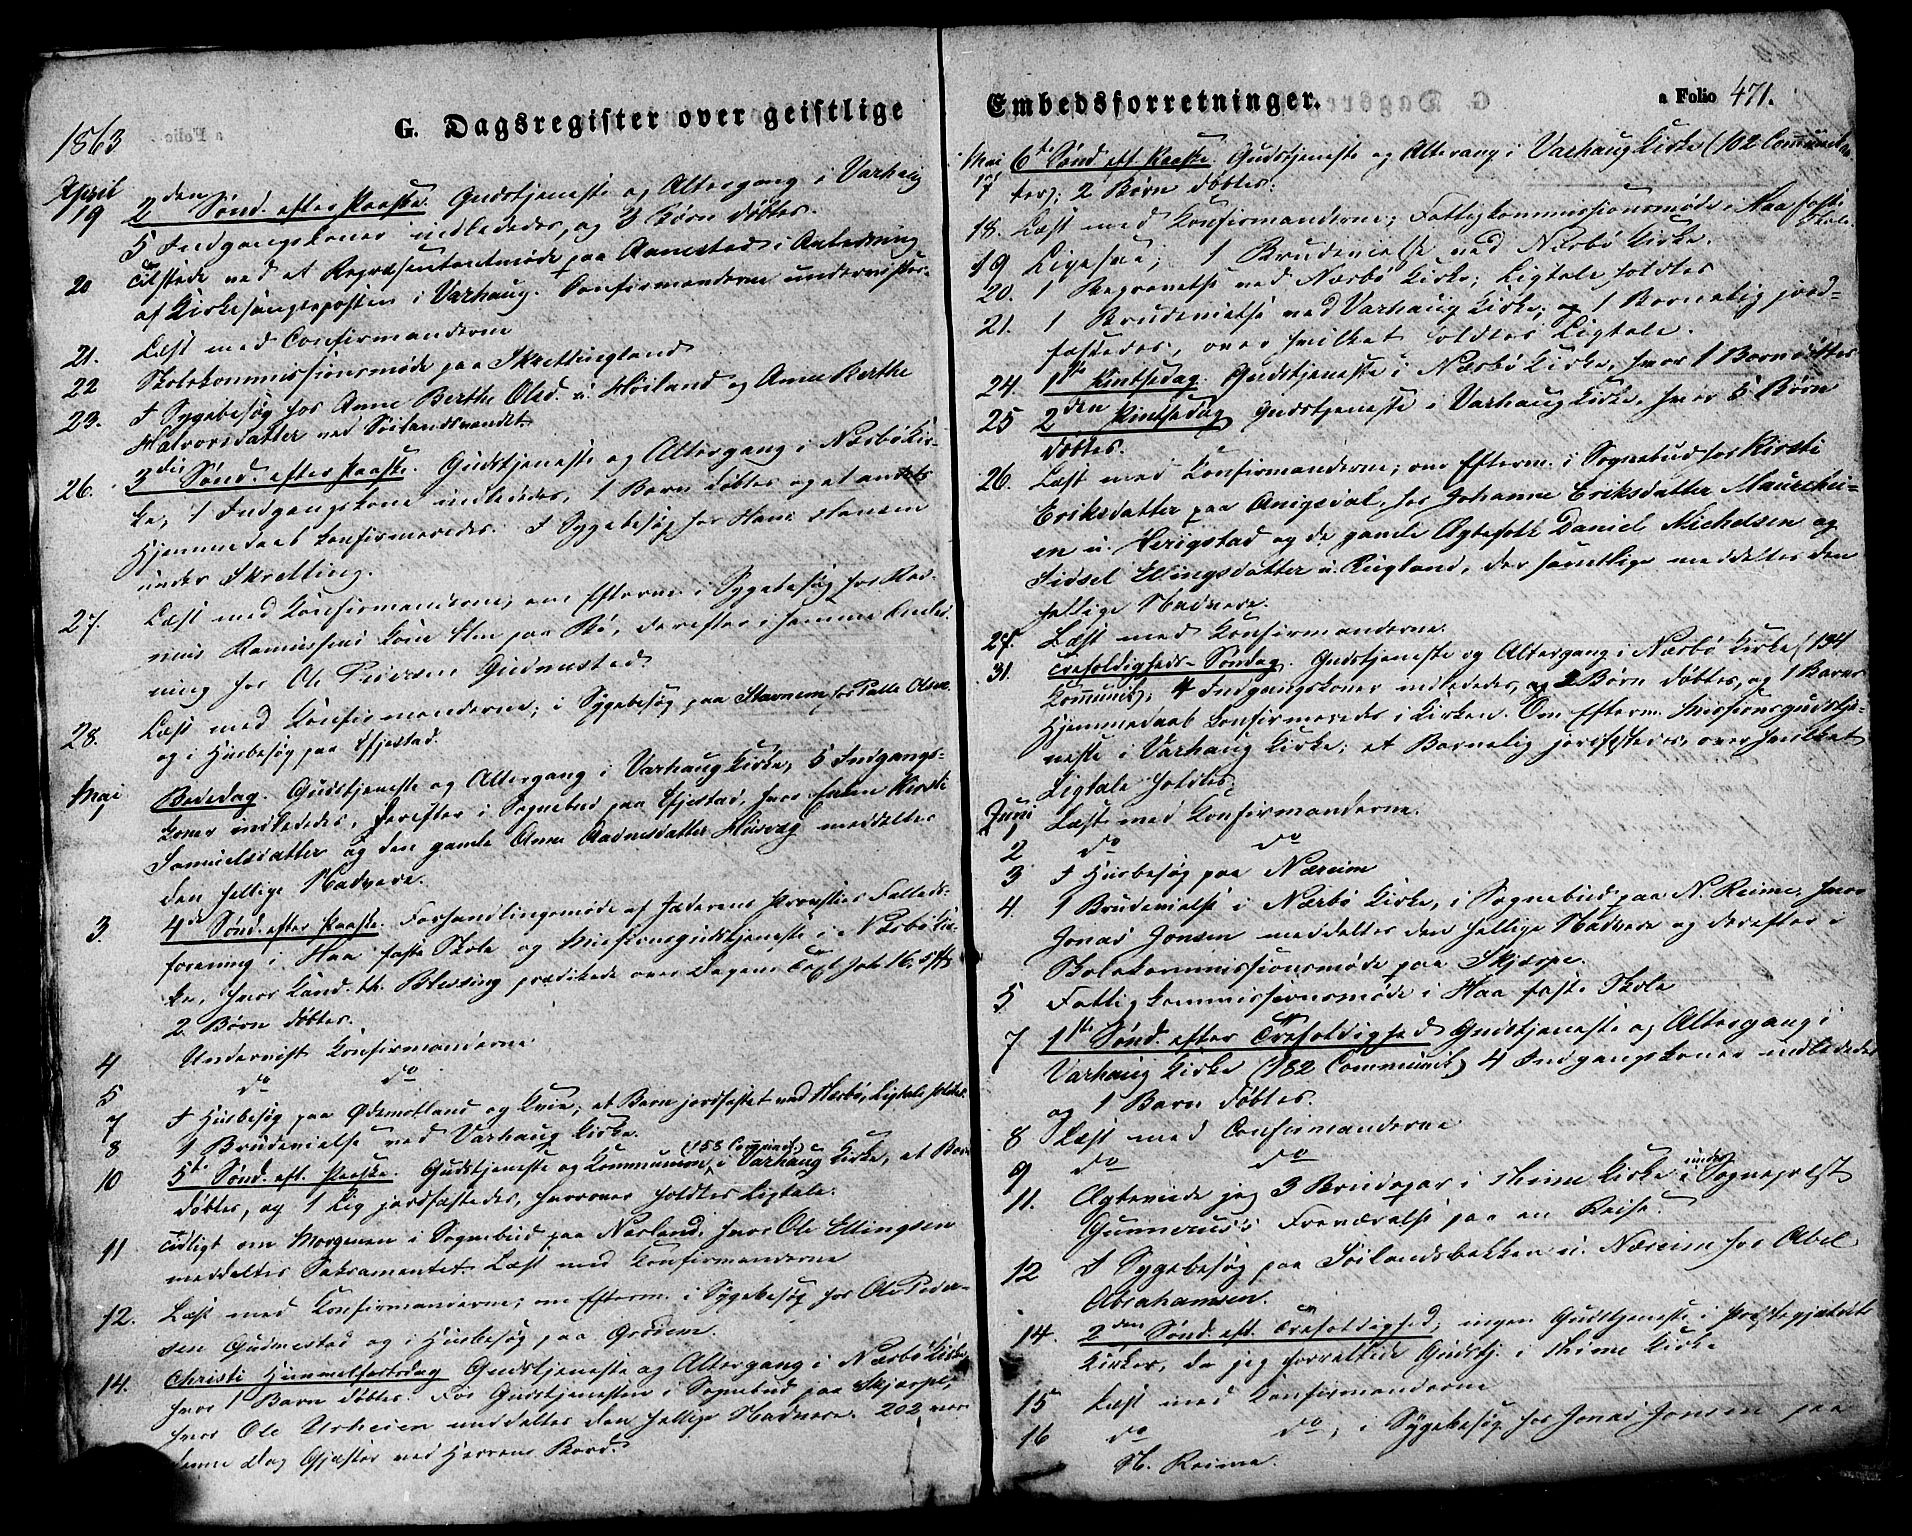 G. Dagsregister over geistlige
1863
April
19 2den Sønd. efter Paaske. Gudstjeneste og Altergang i Varhaug
5 Indgangskoner indlededes, og 3 Børn døbtes.
20 Tilstede ved et Repræsentantmøde paa Aanestad i Anledning
af Kirkesangerposten i Varhaug. Confirmanderne underviistes.
21. Læst med Confirmanderne
22 Skolekommissionsmøde paa Skrettingland
23. I Sygebesøg hos Anne Berthe Olsd. u. Høiland og Anne Berthe
Halvorsdatter ved Søilandsvandet
26. 3die Sønd. efter Paaske. Gudstjeneste og Altergang i Næsbø Kir-
ke, 1 Indgangskone indlededes, 1 Barn døbtes og et andets
Hjemmedaab konfirmeredes. I Sygebesøg hos Hans Hansen
under Skretting.
27. Læst med Konfirmanderne; om Efterm. i Sygebesøg hos Ras-
mus Rasmussens Kone paa Bø, derefter i samme Anled-
ning hos Ole Pedersen Gudmestad
28. Læst med Konfirmanderne; i Sygebesøg paa Stavnem hos Palle Olsen
og i Husbesøg paa Hjestad.
Mai
1 Bededag. Gudstjeneste og Altergang i Varhaug Kirke, 5 Indgangs-
koner indlededes, derefter i Sognebud paa Hjestad, hvor Enken Kirsti
Samuelsdatter og den gamle Anne Aadnesdatter Husvæg meddeltes
den hellige Nadvere.
3. 4de Sønd. efter Paaske. Forhandlingsmøde af Jæderens Provsties Fælleds-
forening i Haa faste Skole og Missionsgudstjeneste i Næsbø Kir-
ke, hvor Kand. th. Blessing prædikede over Dagens Text Joh. 16, 5 ff.
2 Børn døbtes.
4 Underviist Konfirmanderne
5 do do
7 I Husbesøg paa Ødemotland og Kvie; et Barn jordfæstet ved Næsbø, Ligtale holdtes.
8 1 Brudevielse ved Varhaug Kirke.
10 5te Sønd. eft. Paaske. Gudstjeneste og Kommunion (158 Communic.) i Varhaug Kirke, et Barn
døbtes, og 1 Lig jordfæstedes, hvorover holdtes Ligtale.
11 Tidligt om Morgenen i Sognebud paa Nærland, hvor Ole Ellingsen
meddeltes Sakramentet. Læst med Konfirmanderne
12. Læst med Konfirmanderne; om Efterm. i Sygebesøg hos Ole Peder-
sen Gudmestad og i Husbesøg paa Grødem.
14. Christi Himmelfartsdag Gudstjeneste og Altergang i Næsbø Kirke,
hvor 1 Barn døbtes. Før Gudstjenesten i Sognebud paa Skjærpe,
hvor Ole Urheien meddeltes den hellige Nadvere. 202 vare
denne Dag Gjæster ved Herrens Bord.
Embedsforretninger.
a Folio 471.
Mai
17 6te Sønd. eft. Paaske. Gudstjeneste og Altergang i Varhaug Kirke (102 Communikan-
ter); 2 Børn døbtes.
18. Læst med Konfirmanderne; Fattigkommissionsmøde i Haa faste
Skole.
19 Ligesaa; 1 Brudevielse ved Næsbø Kirke.
20. 1 Begravelse ved Næsbø Kirke; Ligtale holdtes
21. 1 Brudevielse ved Varhaug Kirke; og 1 Barnelig jord-
fæstedes, over hvilket holdtes Ligtale.
24. 1ste Pintsedag. Gudstjeneste i Næsbø Kirke, hvor 1 Barn døbtes
25 2den Pintsedag Gudstjeneste i Varhaug Kirke, hvor 5 Børn
døbtes.
26. Læst med Konfirmanderne; om Efterm. i Sognebud hos Kirsti
Eriksdatter paa Anigsdal, hos Johanne Eriksdatter Maurehei-
en u. Herigstad og de gamle Ægtefolk Daniel Michelsen og
Sidsel Ellingsdatter u. Rugland, der samtlige meddeltes den
hellige Nadvere.
27. Læst med Konfirmanderne.
31. Trefoldigheds-Søndag. Gudstjeneste og Altergang i Næsbø Kirke (134
Kommunik.); 4 Indgangskoner indlededes, og 2 Børn døbtes, og 1 Barns
Hjemmedaab konfirmeredes i Kirken. Om Efterm. Missionsgudstje-
neste i Varhaug Kirke; et Barnelig jordfæstedes, over hvilket
Ligtale holdtes.
Juni
1 Læst med Konfirmanderne.
2 do do
3 I Husbesøg paa Næreim
4. 1 Brudevielse i Næsbø Kirke, i Sognebud paa N. Reime, hvor
Jonas Jonsen meddeltes den hellige Nadvere og derefter i
Skolekommissionsmøde paa Skjærpe.
5 Fattigkommissionsmøde i Haa faste Skole
7 1ste Sønd. efter Trefoldighed Gudstjeneste og Altergang i
Varhaug Kirke (182 Communik.) 4 Indgangskoner indlededes
og 1 Barn døbtes.
8 Læst med Confirmanderne
9 do do
11. Ægteviede jeg 3 Brudepar i Thime Kirke under Sognepræst
Gunnerus's Fraværelse paa en Reise.
12 I Sygebesøg paa Søilandsbakken u. Næreim hos Abel
Abrahamsen.
14. 2den Sønd. eft. Trefoldighed, ingen Gudstjeneste i Præstegjældets
Kirker, da jeg forrettede Gudstj. i Thime Kirke
15 Læst med Konfirmanderne
16 do do, i Sygebesøg hos Jonas Jonsen paa
N. Reime.